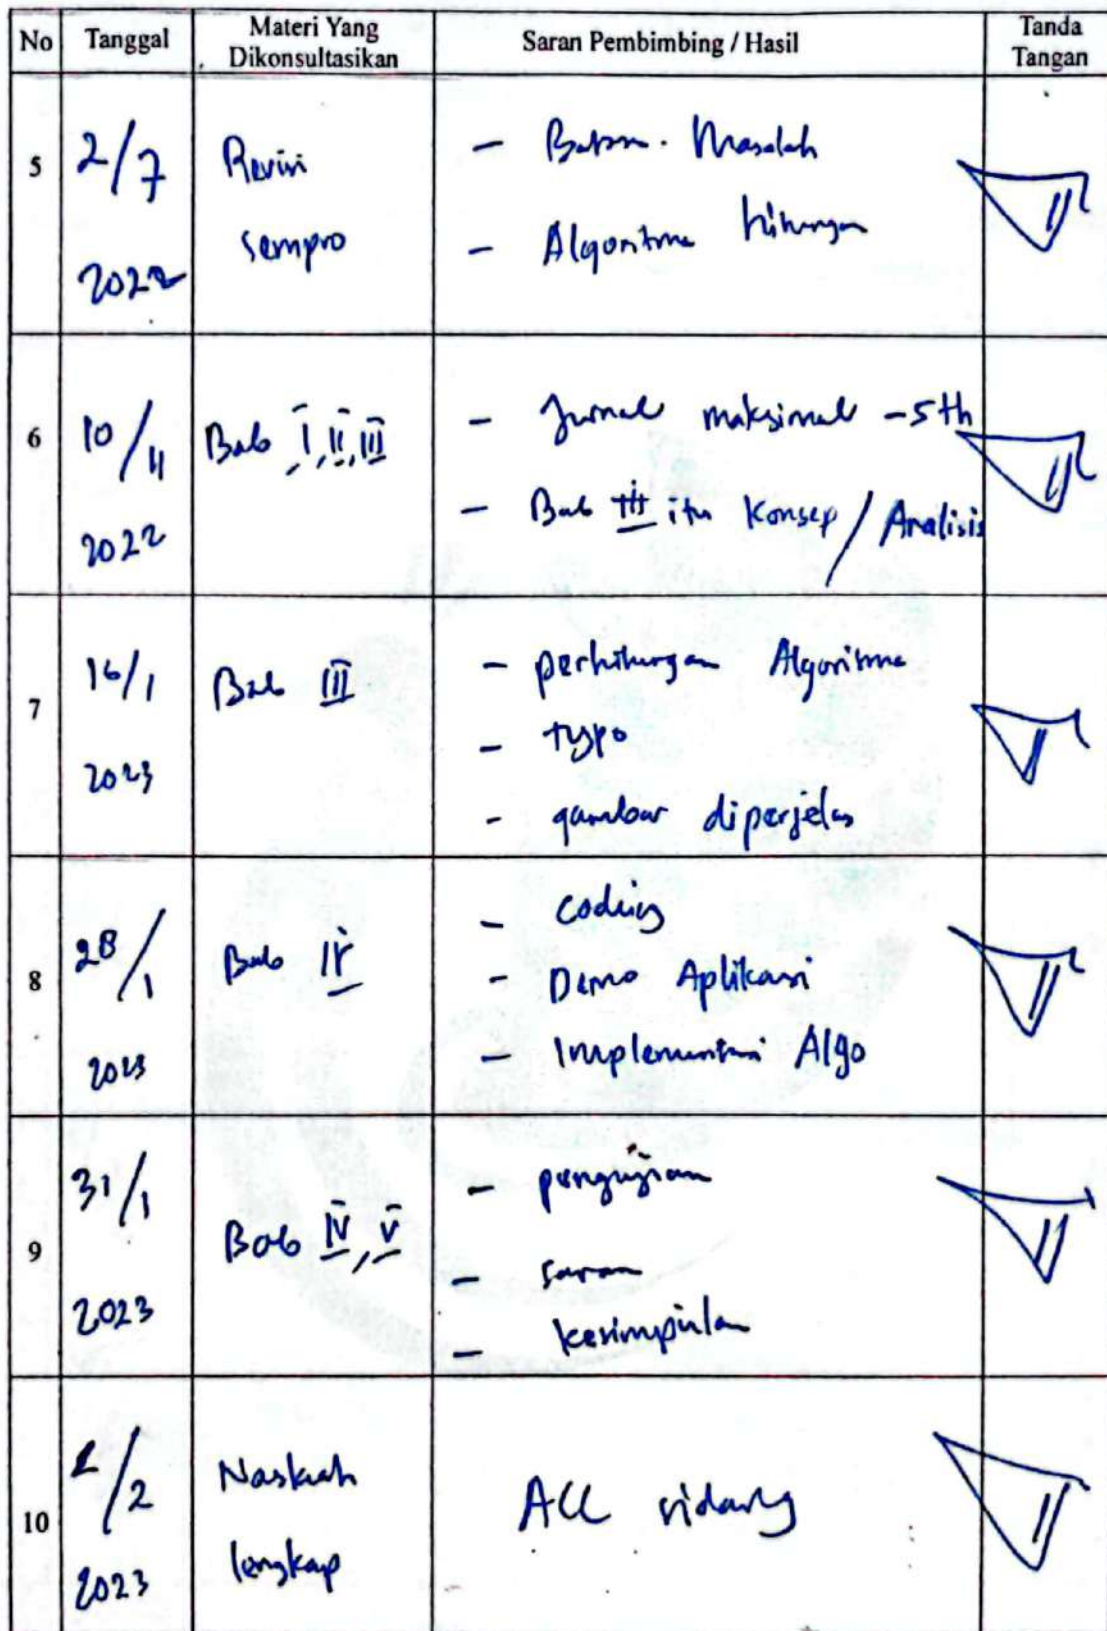 No Tanggal Materi Yang Dikonsultasikan Saran Pembimbing / Hasil Tanda Tangan
5 2/7 2022 Revisi
sempro
- Batasan Masalah
- Algoritma hitungan
6 10/11 2022 Bab I, II, III
- Jurnal maksimal -5 th
- Bab III itu Konsep / Analisis
7 16/1 2023 Bab III
- perhitungan Algoritma
- typo
- gambar diperjelas
8 28/1 2023 Bab IV
- coding
- Demo Aplikasi
- Implementasi Algo
9 31/1 2023 Bab IV, V
- pengujian
- saran
- kesimpulan
10 /2 2023 Naskah
lengkap
ACC sidang